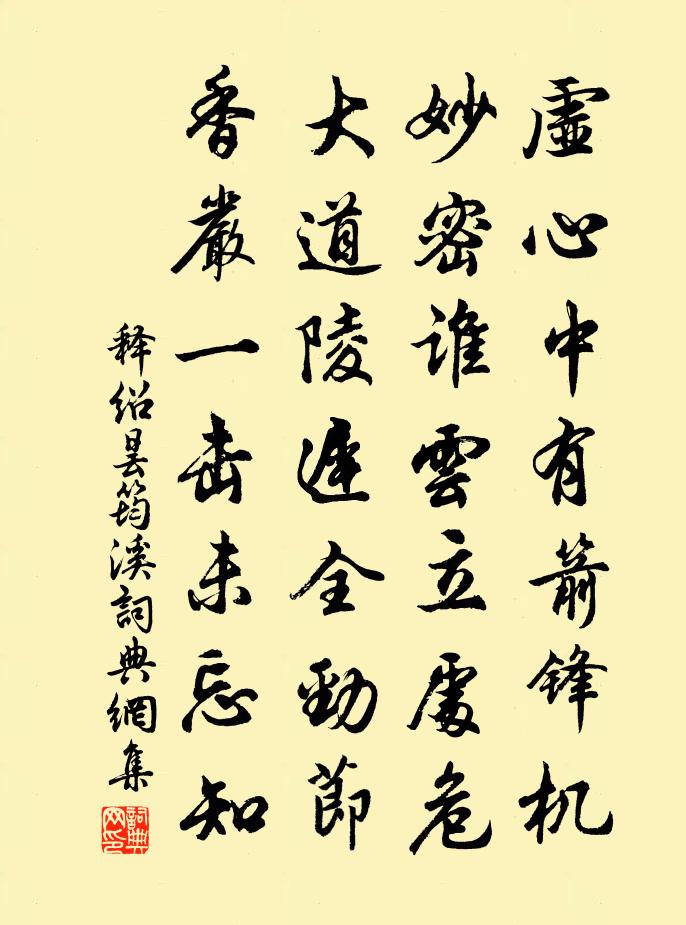 虛心中有箭鋒机
妙密誰雲立處危
大道陵遲全勁節
香嚴一击未忘知
释紹曇筠溪詞典網集
詞典网印